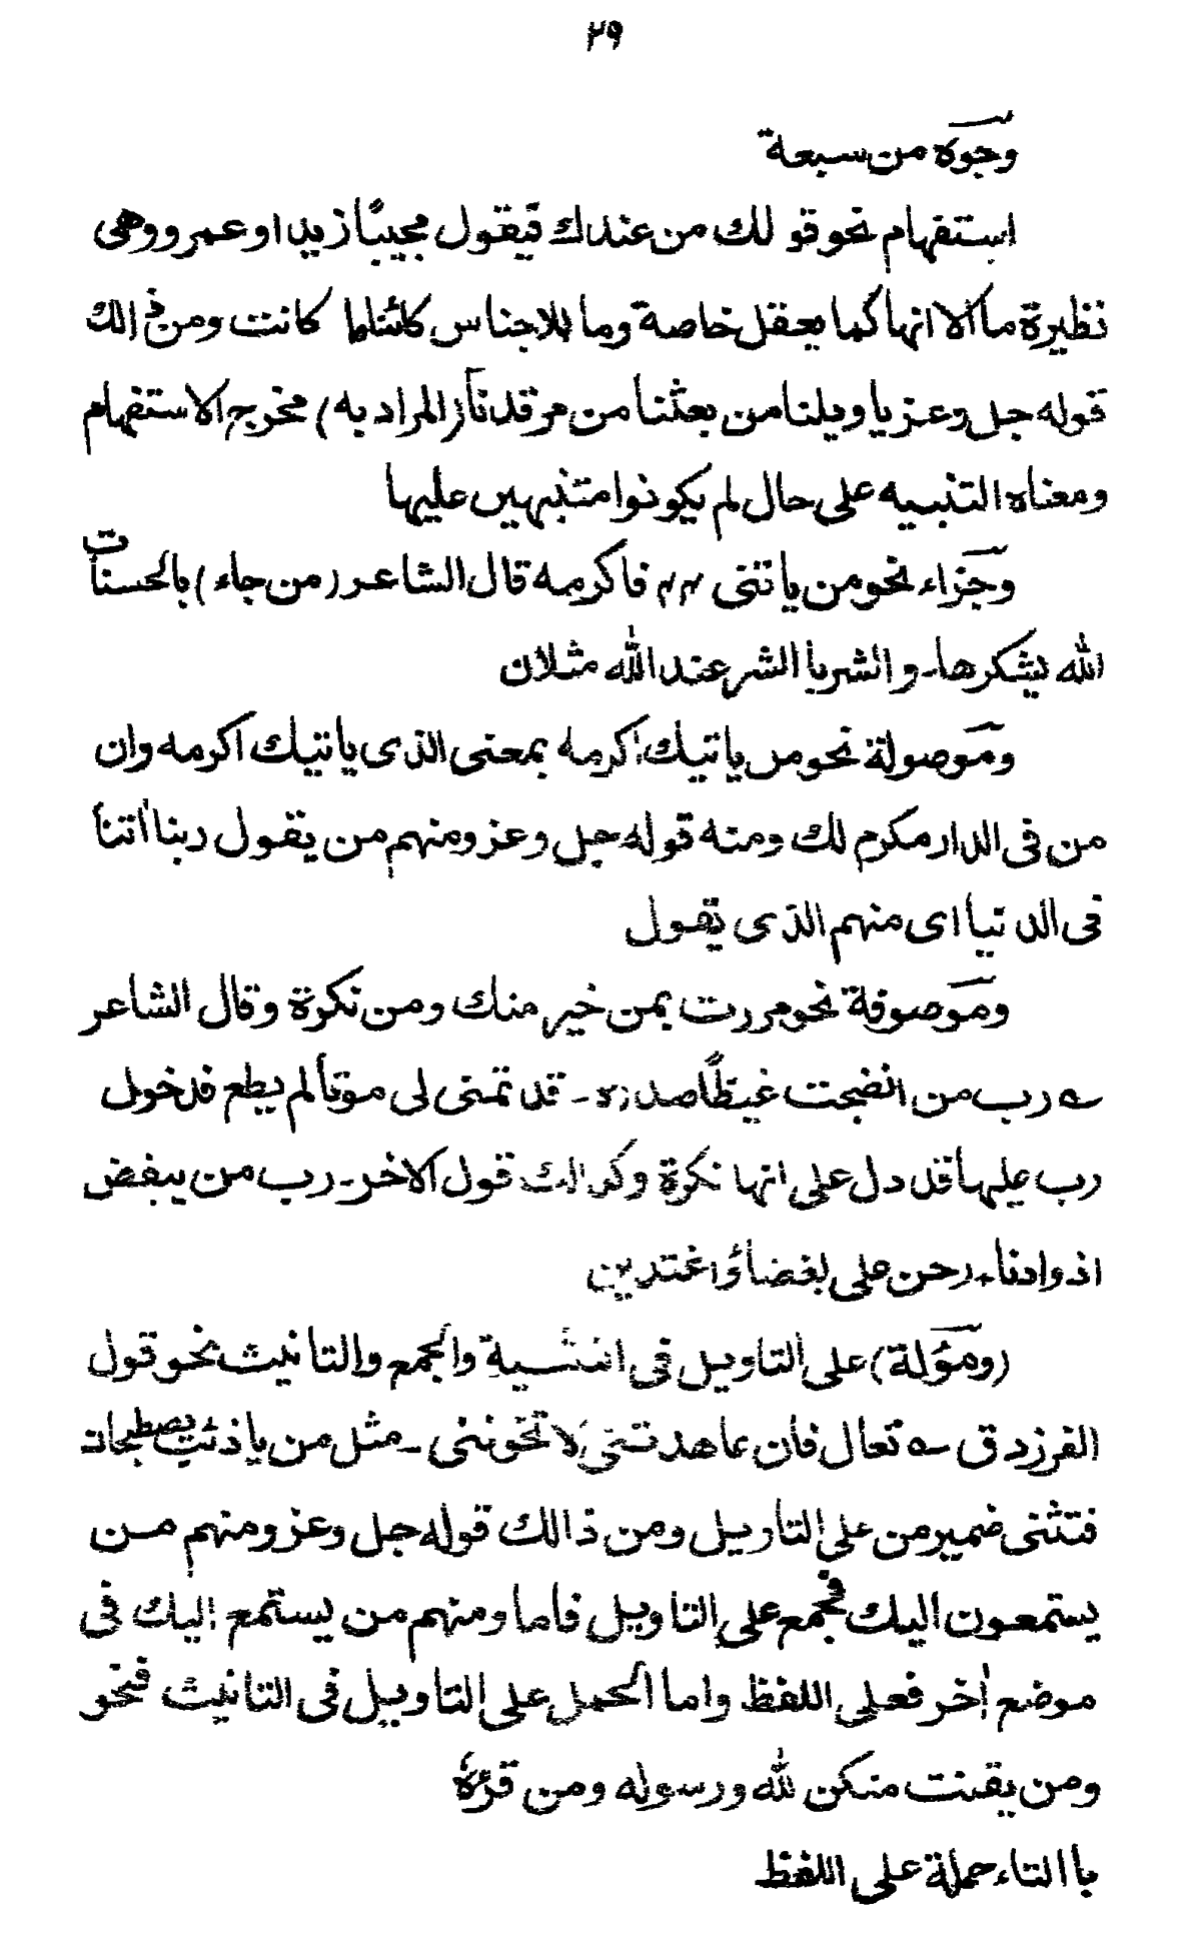 ٢٩
وجوه من سبعة
استفهام نحو قو لك من عندك فيقول مجيبًا زيد او عمرو وهى
نظيرة ما الا انها كما يعقل خاصة وما للاجناس كائنا ما كانت ومن ذالك
قوله جل وعز يا ويلنا من بعثنا من مرقدنا (المراد به) مخرج الاستفهام
ومعناه التنبيه على حال لم يكونوا متنبهين عليها
وجزاء نحو من ياتنى فاكرمه قال الشاعر (من جاء) بالحسنات
الله يشكرها۔ و الشر با الشر عند الله مثلان
وموصولة نحو من ياتيك اكرمه بمعنى الذى ياتيك اكرمه وان
من فى الدار مكرم لك ومنه قوله جل وعز ومنهم من يقول ربنا اتنا
فى الد نيا اى منهم الذى يقول
وموصوفة نحو مررت بمن خير منك ومن نكرة وقال الشاعر
؎ رب من انضجت غيظًا صدره ۔ قد تمنى لى موتا لم يطع فدخول
رب عليها قد دل على انها نكرة وكذالك قول الاخر۔ رب من يبغض
اذوادنا۔ رحن على بغضائه اغتدين
(ومؤلة) على التاويل فى التثنية والجمع والتانيث نحو قول
الفرزدق ؎ تعال فان عاهدتنى لا تخوننى ۔ مثل من يا ذئب يصطحبان
فتثنى ضمير من على التاويل ومن ذالك قوله جل وعز ومنهم من
يستمعون اليك فجمع على التاويل فاما ومنهم من يستمع اليك فى
موضع اٰخر فعلى اللفظ واما الحمل على التاويل فى التانيث فنحو
ومن يقنت منكن لله ورسوله ومن قرئه
با التاء حملة على اللفظ